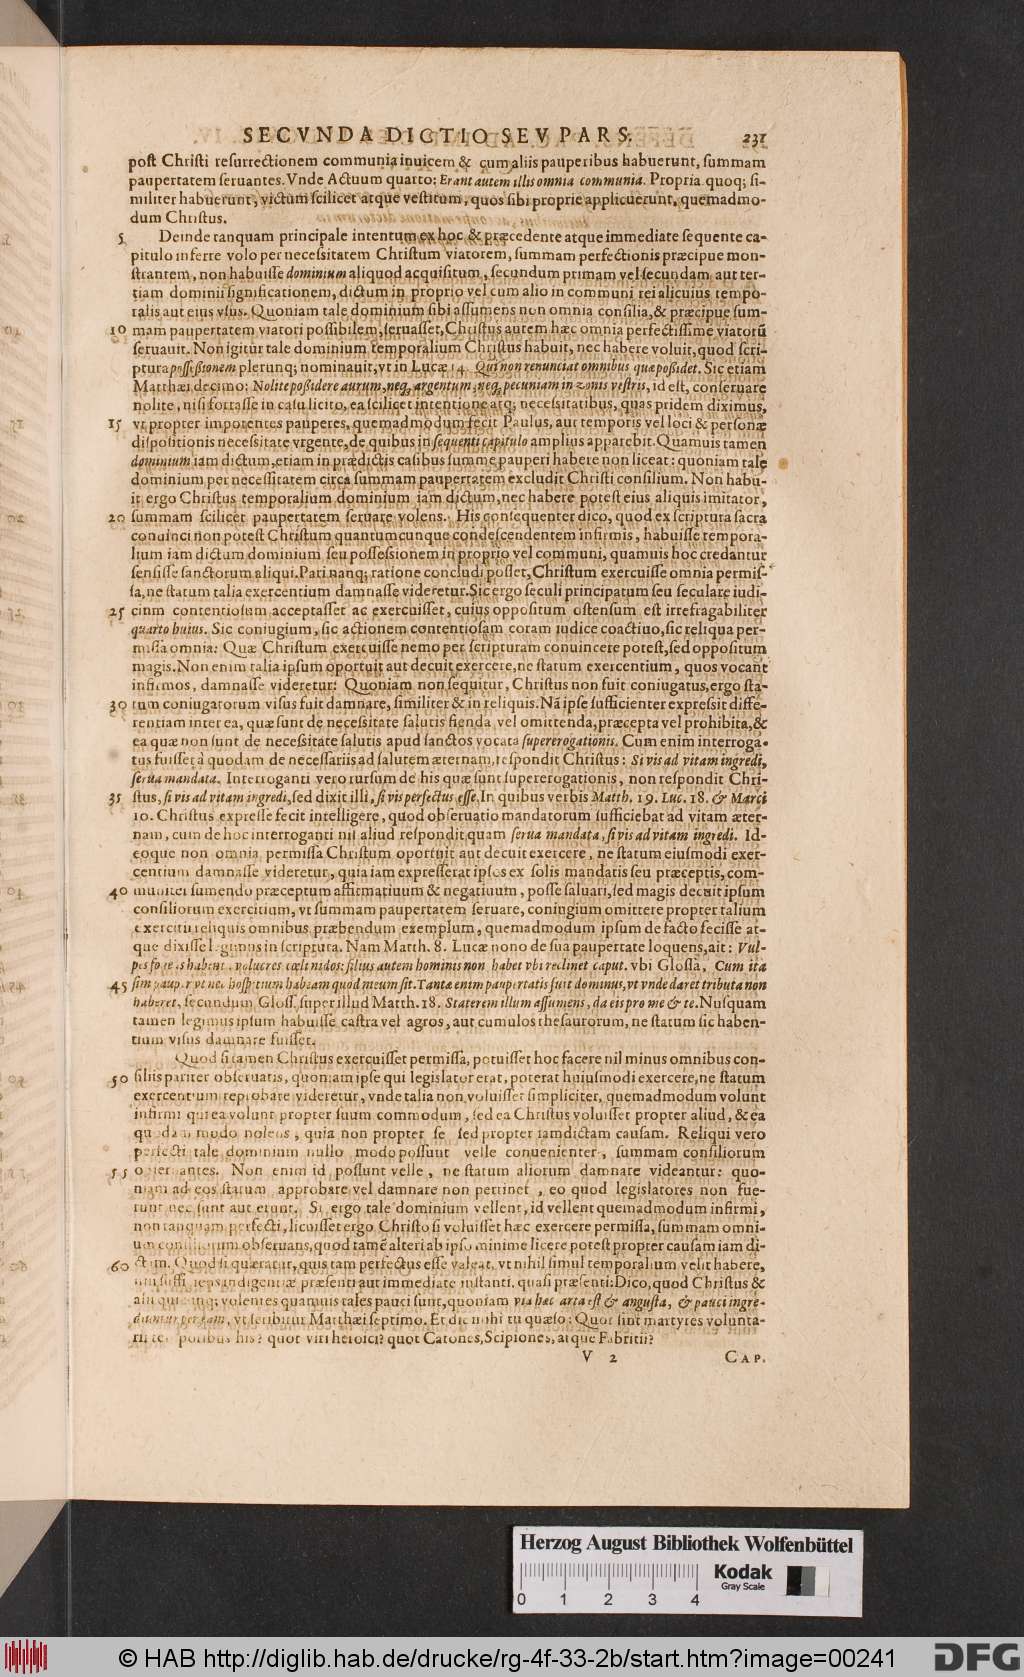 SECVNDA DICTIO SEV PARS. 231
post Christi resurrectionem communia inuicem & cum aliis pauperibus habuerunt, summam
paupertatem seruantes. Vnde Actuum quarto: Erant autem illis omnia communia. Propria quoq; si-
militer habuerunt, victum scilicet atque vestitum, quos sibi proprie applicuerunt, quemadmo-
dum Christus.
5 Deinde tanquam principale intentum ex hoc & præcedente atque immediate sequente ca-
pitulo inferre volo per necessitatem Christum viatorem, summam perfectionis præcipue mon-
strantem, non habuisse dominium aliquod acquisitum, secundum primam vel secundam aut ter-
tiam dominii significationem, dictum in proprio vel cum alio in communi rei alicuius tempo-
ralis aut eius vsus. Quoniam tale dominium sibi assumens non omnia consilia, & præcipue sum-
10 mam paupertatem viatori possibilem, seruasset, Christus autem hæc omnia perfectissime viatorũ
seruauit. Non igitur tale dominium temporalium Christus habuit, nec habere voluit, quod scri-
ptura possessionem plerunq; nominauit, vt in Lucæ 14. Qui non renunciat omnibus quæ possidet. Sic etiam
Matthæi decimo: Nolite possidere aurum, neq, argentum, neq, pecuniam in zonis vestris, id est, conseruare
nolite, nisi fortasse in casu licito, ea scilicet intentione atq; necessitatibus, quas pridem diximus,
15 vt propter impotentes pauperes, quemadmodum fecit Paulus, aut temporis vel loci & personæ
dispositionis necessitate vrgente, de quibus in sequenti capitulo amplius apparebit. Quamuis tamen
dominium iam dictum, etiam in prædictis casibus summe pauperi habere non liceat: quoniam tale
dominium per necessitatem circa summam paupertatem excludit Christi consilium. Non habu-
it ergo Christus temporalium dominium iam dictum, nec habere potest eius aliquis imitator,
20 summam scilicet paupertatem seruare volens. His consequenter dico, quod ex scriptura sacra
conuinci non potest Christum quantumcunque condescendentem infirmis, habuisse tempora-
lium iam dictum dominium seu possessionem in proprio vel communi, quamuis hoc credantur
sensisse sanctorum aliqui. Pari nanq; ratione concludi posset, Christum exercuisse omnia permis-
sa, ne statum talia exercentium damnasse videretur. Sic ergo seculi principatum seu seculare iudi-
25 cium contentiosum acceptasset ac exercuisset, cuius oppositum ostensum est irrefragabiliter
quarto huius. Sic coniugium, sic actionem contentiosam coram iudice coactiuo, sic reliqua per-
missa omnia: Quæ Christum exercuisse nemo per scripturam conuincere potest, sed oppositum
magis. Non enim talia ipsum oportuit aut decuit exercere, ne statum exercentium, quos vocant
infirmos, damnasse videretur: Quoniam non sequitur, Christus non fuit coniugatus, ergo sta-
30 tum coniugatorum visus fuit damnare, similiter & in reliquis. Nã ipse sufficienter expressit diffe-
rentiam inter ea, quæ sunt de necessitate salutis fienda vel omittenda, præcepta vel prohibita, &
ea quæ non sunt de necessitate salutis apud sanctos vocata supererogationis. Cum enim interroga-
tus fuisset à quodam de necessariis ad salutem æternam, respondit Christus: Si vis ad vitam ingredi,
serua mandata. Interroganti vero rursum de his quæ sunt supererogationis, non respondit Chri-
35 stus, si vis ad vitam ingredi, sed dixit illi, si vis perfectus esse, In quibus verbis Matth. 19. Luc. 18. & Marci
10. Christus expresse fecit intelligere, quod obseruatio mandatorum sufficiebat ad vitam æter-
nam, cum de hoc interroganti nil aliud respondit, quam serua mandata, si vis ad vitam ingredi. Id-
eoque non omnia permissa Christum oportuit aut decuit exercere, ne statum eiusmodi exer-
centium damnasse videretur, quia iam expresserat ipsos ex solis mandatis seu præceptis, com-
40 muniter sumendo præceptum affirmatiuum & negatiuum, posse saluari, sed magis decuit ipsum
consiliorum exercitium, vt summam paupertatem seruare, coniugium omittere propter talium
exercitii reliquis omnibus præbendum exemplum, quemadmodum ipsum de facto fecisse at-
que dixisse legimus in scriptura. Nam Matth. 8. Lucæ nono de sua paupertate loquens, ait: Vul-
pes foueas habent, volucres cœli nidos: filius autem hominis non habet vbi reclinet caput. vbi Glossa, Cum ita
45 sim pauper, vt nec hospitium habeam quod meum sit. Tanta enim paupertatis fuit dominus, vt vnde daret tributa non
haberet, secundum Gloss. super illud Matth. 18. Staterem illum assumens, da eis pro me & te. Nusquam
tamen legimus ipsum habuisse castra vel agros, aut cumulos thesaurorum, ne statum sic haben-
tium visus damnare fuisset.
Quod si tamen Christus exercuisset permissa, potuisset hoc facere nil minus omnibus con-
50 siliis pariter obseruatis, quoniam ipse qui legislator erat, poterat huiusmodi exercere, ne statum
exercentium reprobare videretur, vnde talia non voluisset simpliciter, quemadmodum volunt
infirmi qui ea volunt propter suum commodum, sed ea Christus voluisset propter aliud, & ea
quodam modo nolens, quia non propter se sed propter iamdictam causam. Reliqui vero
perfecti tale dominium nullo modo possunt velle conuenienter, summam consiliorum
55 obseruantes. Non enim id possunt velle, ne statum aliorum damnare videantur: quo-
niam ad eos statum approbare vel damnare non pertinet, eo quod legislatores non fue-
runt nec sunt aut erunt. Si ergo tale dominium vellent, id vellent quemadmodum infirmi,
non tanquam perfecti, licuisset ergo Christo si voluisset hæc exercere permissa, summam omni-
um consiliorum obseruans, quod tamẽ alteri ab ipso minime licere potest propter causam iam di-
60 ctam. Quod si quæratur, quis tam perfectus esse valeat, vt nihil simul temporalium velit habere,
nisi sufficiens indigentiæ præsenti aut immediate instanti, quasi præsenti: Dico, quod Christus &
alii quicunq; volentes quamuis tales pauci sunt, quoniam via hæc arcta est & angusta, & pauci ingre-
diuntur per eam, vt scribitur Matthæi septimo. Et dic mihi tu quæso: Quot sint martyres volunta-
rii temporibus his? quot viri heroici? quot Catones, Scipiones, atque Fabritii?
V 2 CAP.
Herzog August Bibliothek Wolfenbüttel
Kodak
Gray Scale
0 1 2 3 4
© HAB http://diglib.hab.de/drucke/rg-4f-33-2b/start.htm?image=00241
DFG